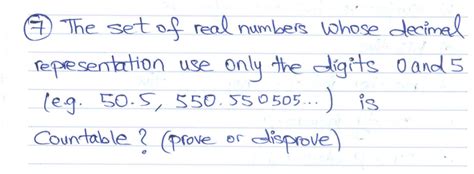 ⑦ The set of real numbers whose decimal
representation use only the digits 0 and 5
(eg. 50.5, 550.550505...) is
Countable? (prove or disprove)